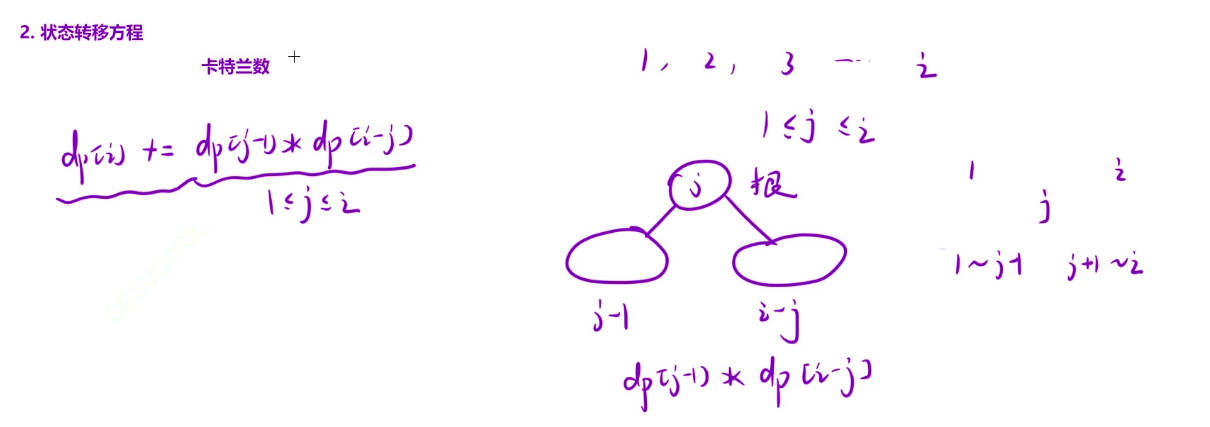 2. 状态转移方程
卡特兰数
dp[i] += dp[j-1] * dp[i-j]
1 ≤ j ≤ i
1, 2, 3 ... i
1 ≤ j ≤ i
j 根
j-1 i-j
dp[j-1] * dp[i-j]
1 i
j
1~j-1 j+1~i